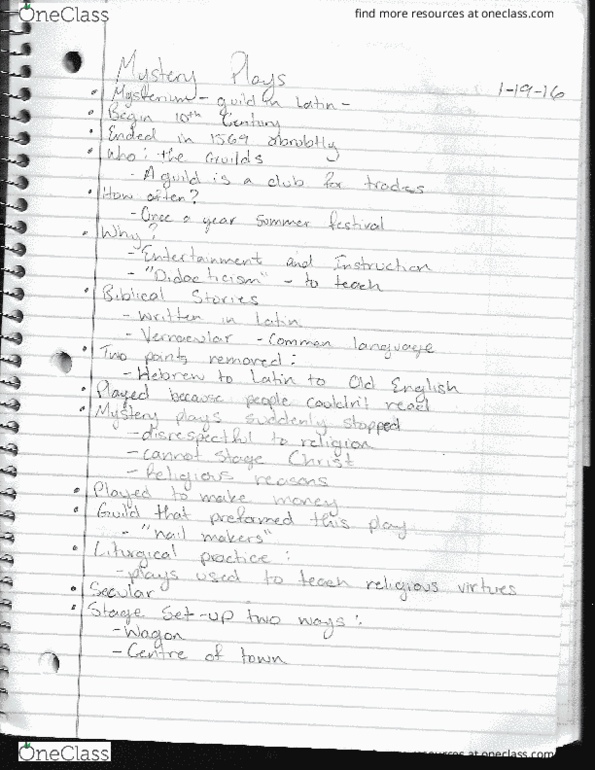 OneClass
find more resources at oneclass.com
Mystery Plays
1-19-16
• Mysterium - guild in Latin -
• Begin 10th Century
• Ended in 1569 abrubtly
• Who: the Guilds
- A guild is a club for trades
• How often?
- Once a year summer festival
• Why?
- Entertainment and Instruction
- "Didacticism" - to teach
• Biblical Stories
- written in Latin
- Vernacular - Common language
• Two points removed:
- Hebrew to Latin to Old English
• Played because people couldn't read
• Mystery plays suddenly stopped
- disrespectful to religion
- cannot stage Christ
- Religious reasons
• Played to make money
• Guild that preformed this play
- "nail makers"
• Liturgical practice:
- plays used to teach religious virtues
• Secular
• Stage Set-up two ways:
- Wagon
- Centre of town
OneClass
resources at oneclass.com